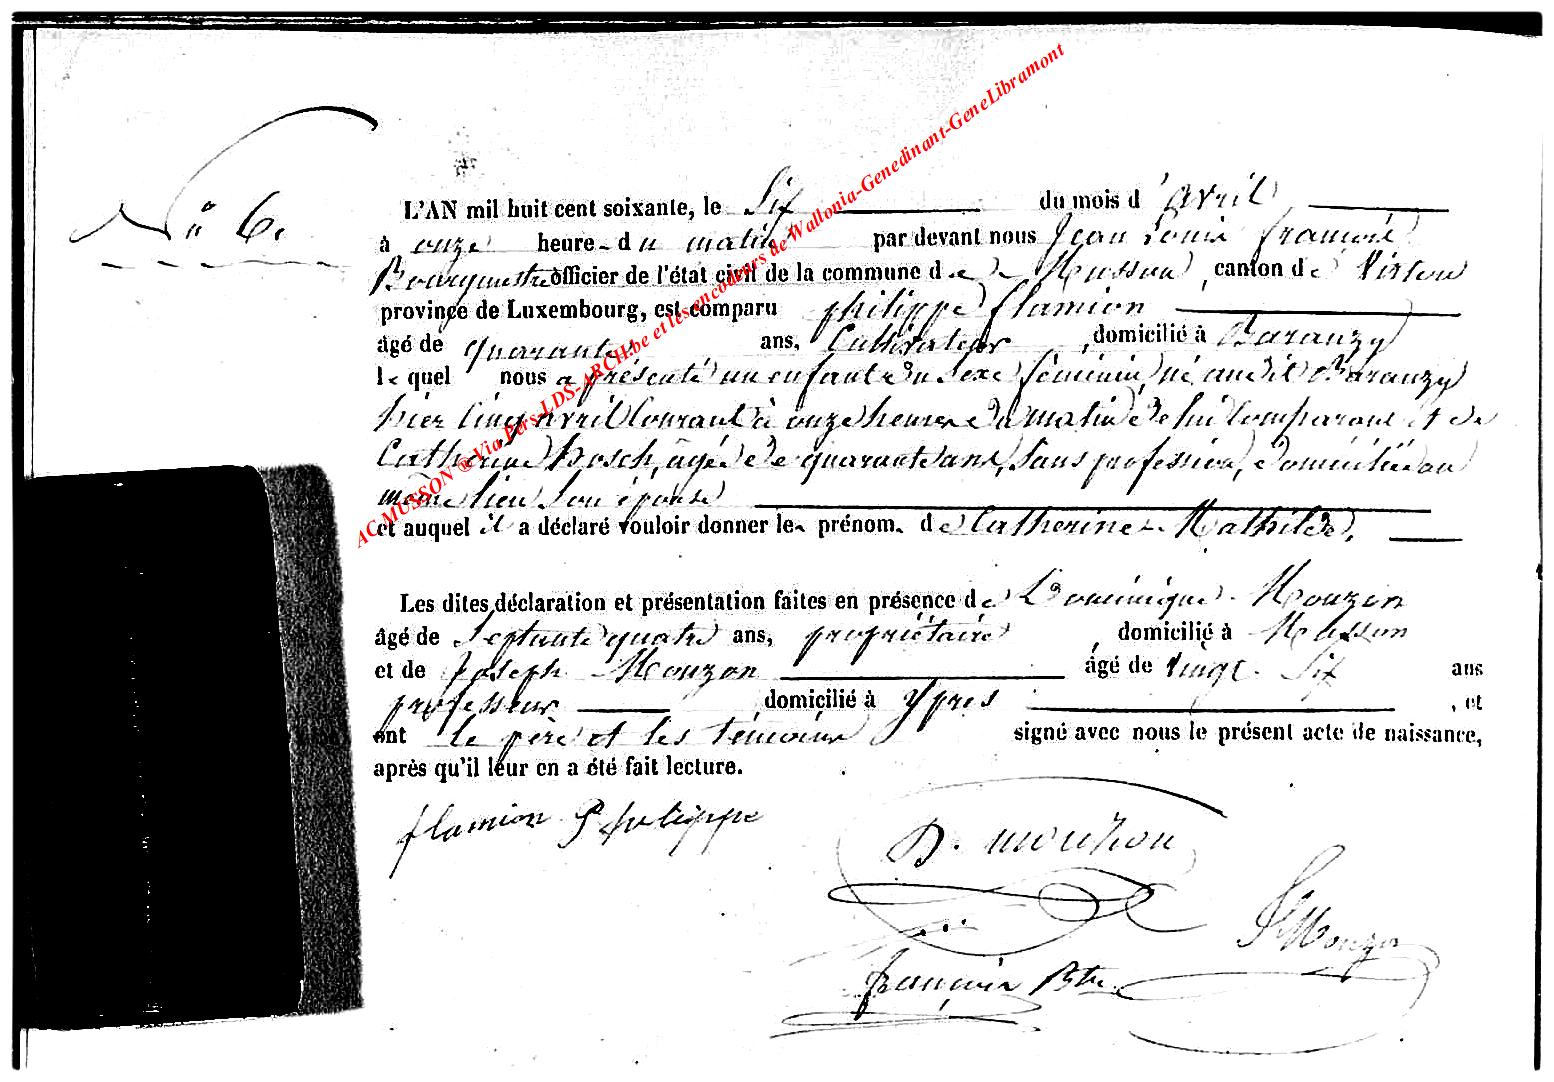 N° 6.
L'AN mil huit cent soixante, le Six du mois d'avril
à onze heure du matin par devant nous Jean Louis françois
Bourgmestre officier de l'état civil de la commune de Musson, canton de Virton
province de Luxembourg, est comparu philippe flamion
âgé de quarante ans, Cultivateur, domicilié à Baranzy
le quel nous a présenté un enfant du Sexe féminin, né audit Baranzy
hier Cinq avril Courant à onze heures du matin de lui Comparant et de
Catherine Bosch, âgée de quarante ans, Sans profession, domiciliée au
même lieu Son épouse
et auquel il a déclaré vouloir donner le prénom de Catherine Mathilde.
Les dites déclaration et présentation faites en présence de Dominique Mouzon
âgé de Septante quatre ans, propriétaire, domicilié à Musson
et de Joseph Mouzon âgé de vingt Six ans
professeur domicilié à Ypres, et
ont le père et les témoins signé avec nous le présent acte de naissance,
après qu'il leur en a été fait lecture.
flamion Philippe
D. mouzon
J. Mouzon
françois Btre
AC MUSSON @ Via Pers-LDS-ARCH.be et les encodeurs de Wallonia-Genedinant-GeneLibramont